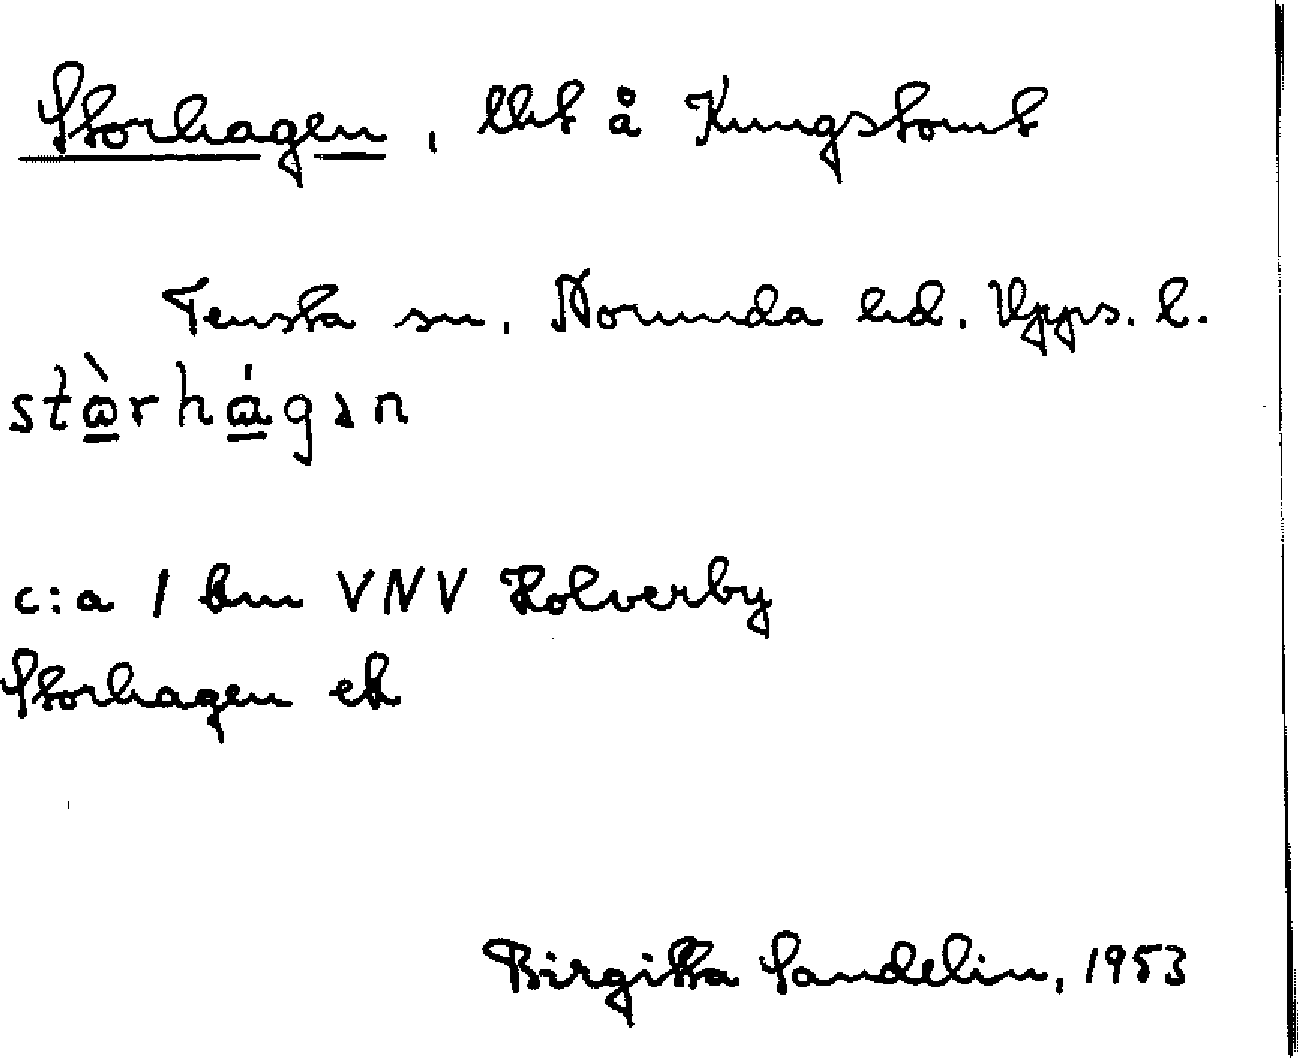 Storhagen, lht å Kungstomt
Tensta sn. Norunda hd. Upps. l.
stà̱rhá̱gən
c:a 1 km VNV Kolverby
Storhagen ek
Birgitta Sandelin, 1953